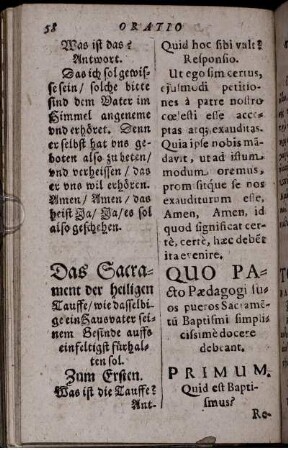 58 ORATIO
Was ist das?
Antwort.
Das ich sol gewis-
se sein/ solche bitte
sind dem Vater im
Himmel angeneme
vnd erhöret. Denn
er selbst hat vns ge-
boten also zu beten/
vnd verheissen/ das
er vns wil erhören.
Amen/ Amen/ das
heist Ja/ Ja/ es sol
also geschehen.
Das Sacra-
ment der heiligen
Tauffe/ wie dasselbi-
ge ein Hausvater sei-
nem Gesinde auffs
einfeltigst fürhal-
ten sol.
Zum Ersten.
Was ist die Tauffe?
Ant-
Quid hoc sibi vult?
Responsio.
Ut ego sim certus,
ejusmodi petitio-
nes à patre nostro
cœlesti esse acce-
ptas atq; exauditas.
Quia ipse nobis mā-
davit, ut ad istum
modum oremus,
promisitq́ue se nos
exauditurum esse.
Amen, Amen, id
quod significat cer-
tè, certè, hæc debēt
ita evenire.
QUO PA-
cto Pædagogi suos
pueros Sacramē-
tū Baptismi simpli-
cissimè docere
debeant.
PRIMUM.
Quid est Bapti-
smus?
Re-